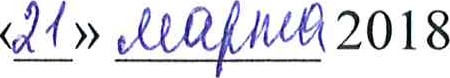 «21» марта 2018